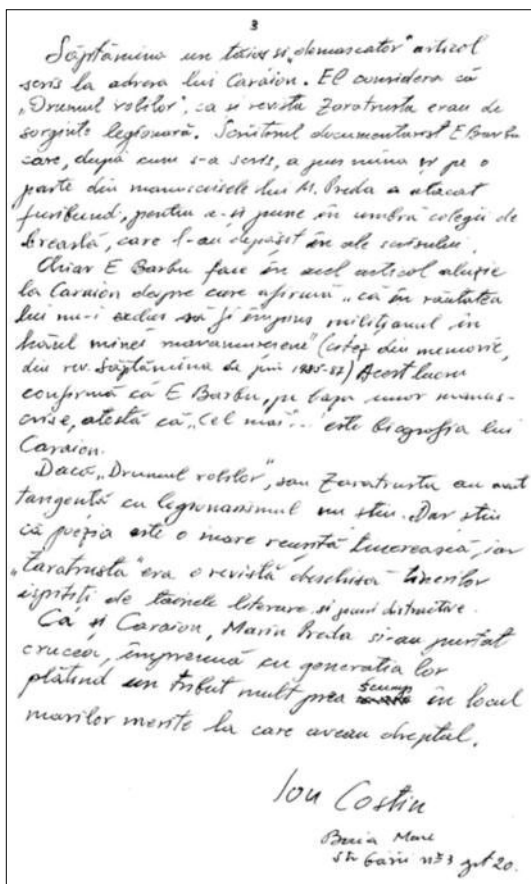 3
Săptămîna un tăios și „demascator" articol
scris la adresa lui Caraion. El considera că
„Drumul robilor", ca și revista Zaratrusta erau de
sorginte legionară. Scriitorul documentarist E Barbu
care, după cum s-a scris, a pus mîna și pe o
parte din manuscrisele lui M. Preda a atacat
furibund, pentru a-și pune în umbră colegii de
breaslă, care l-au depășit în ale scrisului.
Chiar E Barbu face în acel articol aluzie
la Caraion despre care afirmă „că în răutatea
lui nu-i exclus să fi împins milițianul în
hăul minei maramureșene" (citez din memorie,
din rev. Săptămîna de prin 1985-87) Acest lucru
confirmă că E Barbu, pe baza unor manus-
crise, atestă că „Cel mai"... este biografia lui
Caraion.
Dacă „Drumul robilor", sau Zaratrusta au avut
tangentă cu legionarismul nu știu. Dar știu
că poezia este o mare reușită tinerească, iar
„Zaratrusta" era o revistă deschisă tinerilor
ispitiți de tainele literare, și distractive.
Ca și Caraion, Marin Preda și-au purtat
crucea, împreună cu generația lor
plătind un tribut mult prea scump în locul
marilor merite la care aveau dreptul.
Ion Costin
Baia Mare
Str Gării nr 3 apt 20.